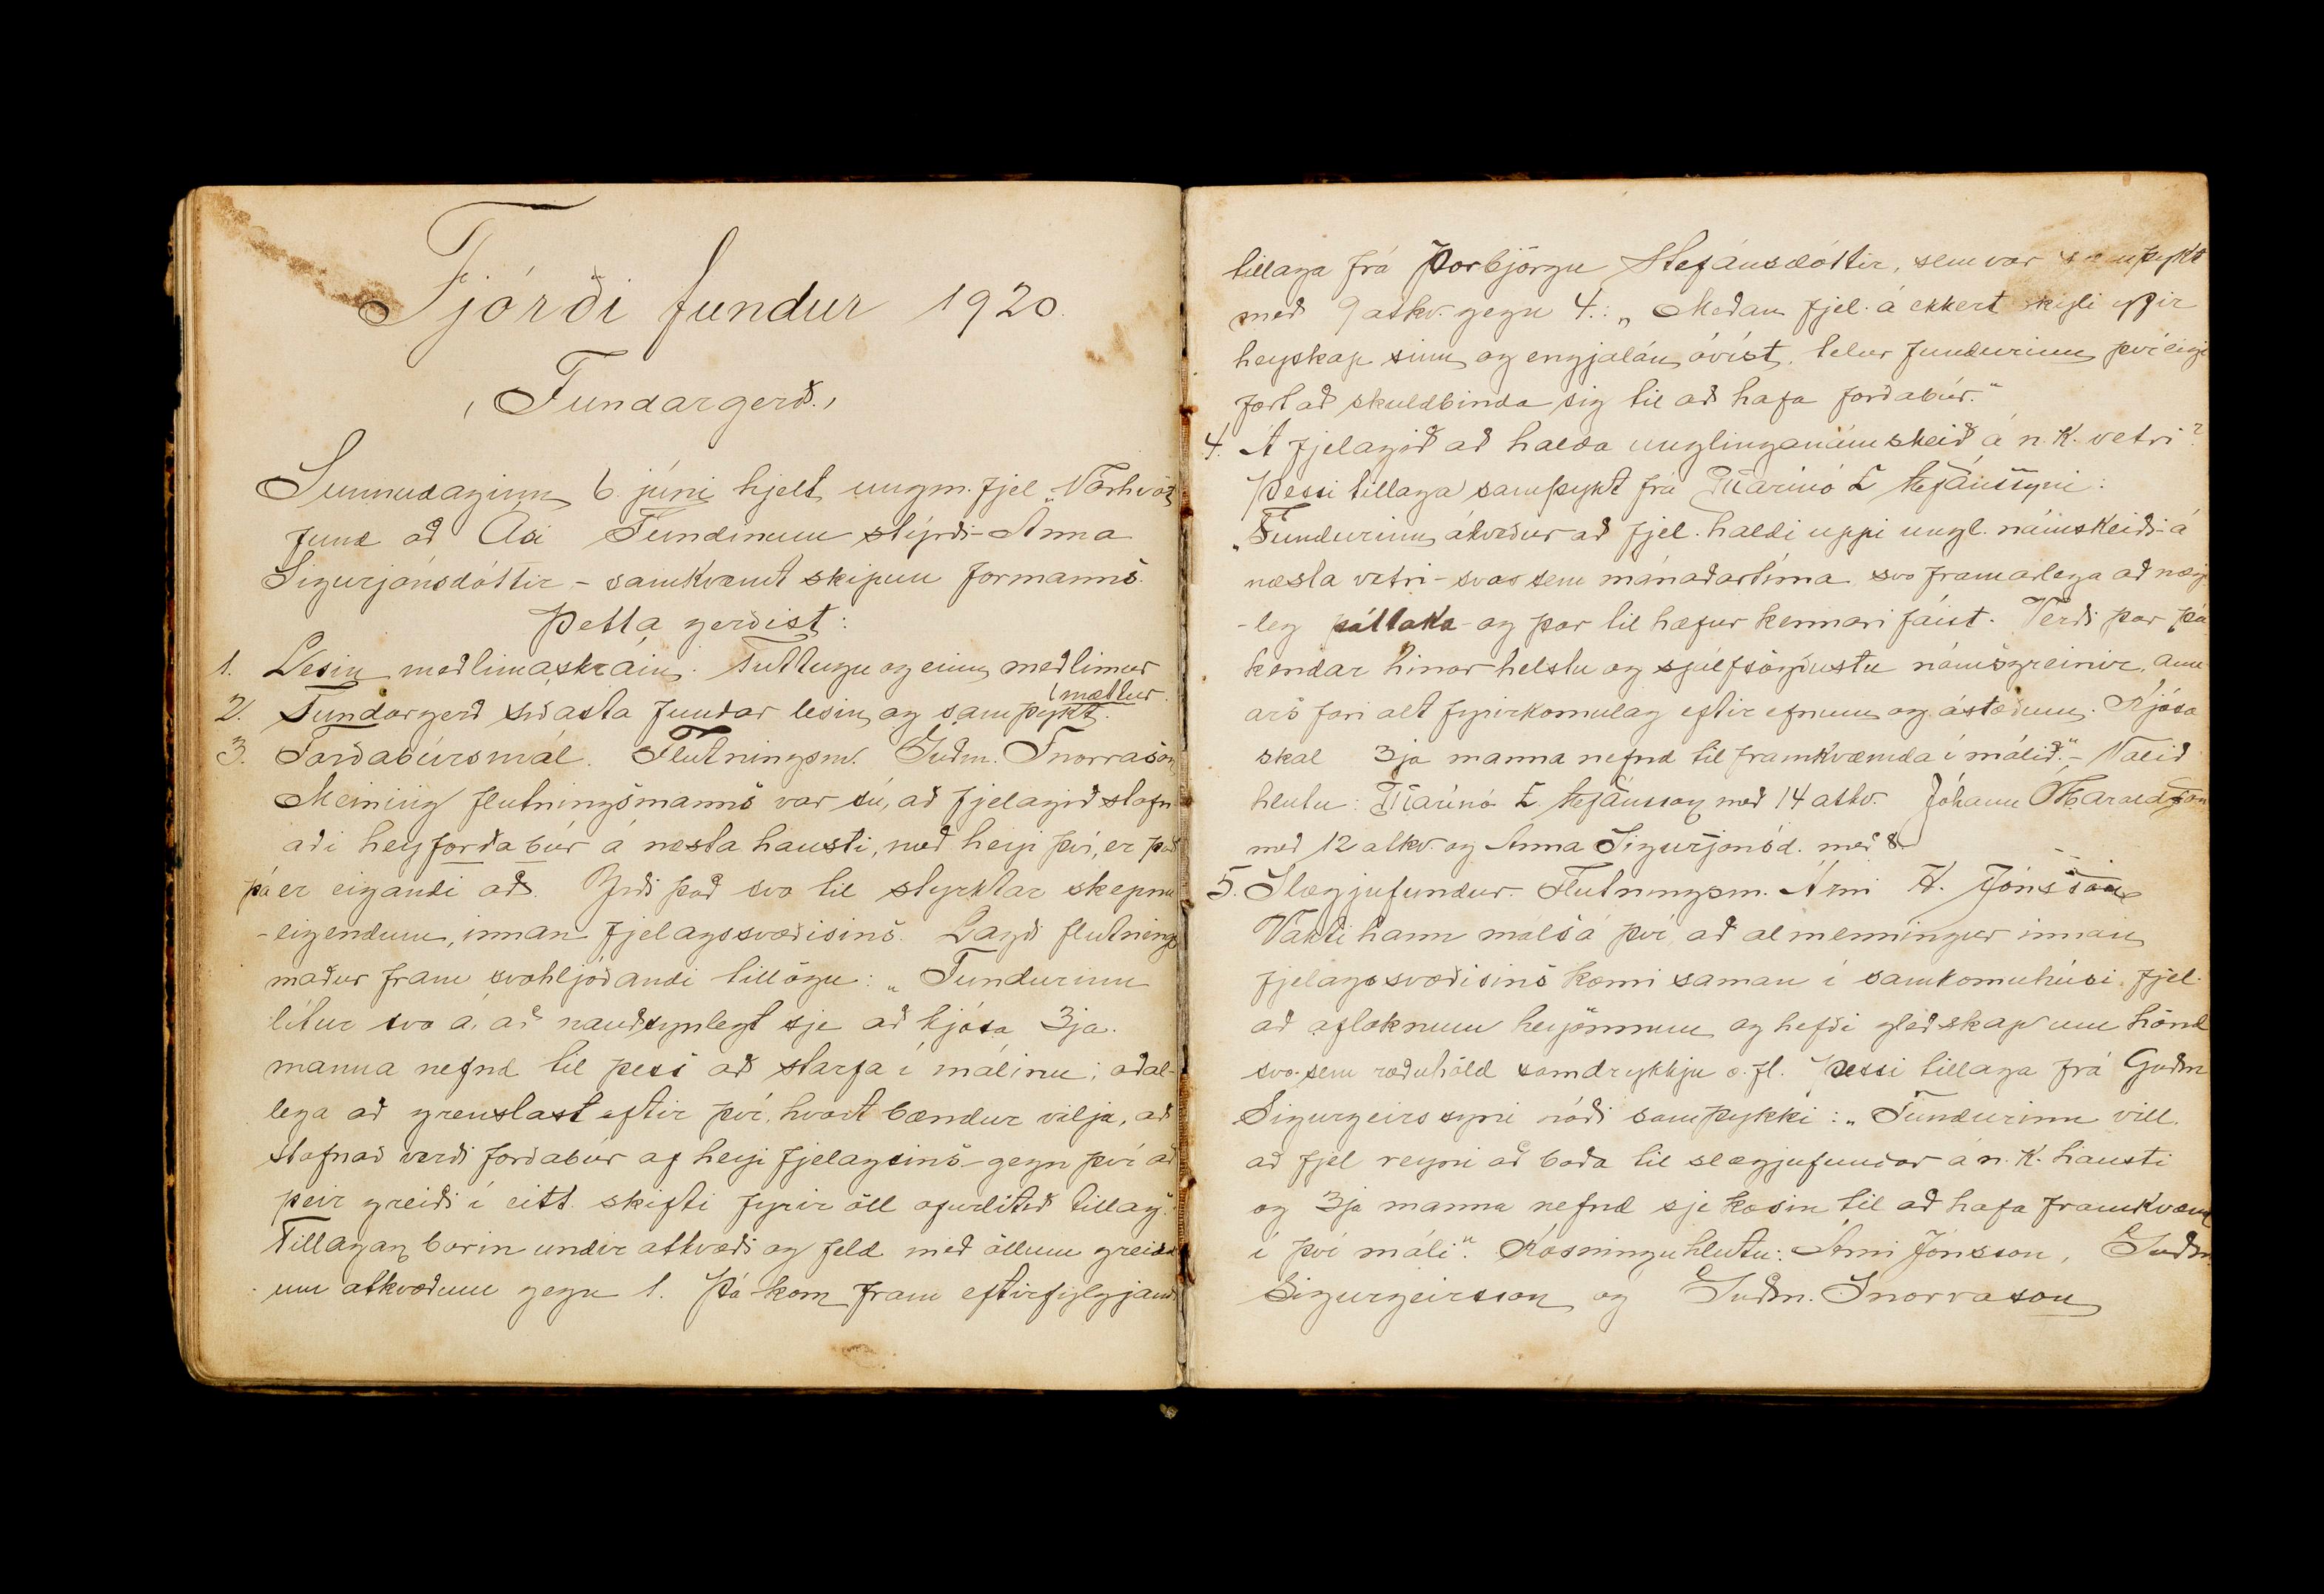 Fjórði fundur 1920.
Fundargerð.
Sunnudaginn 6. júní hjelt ungm.fjel „Vorhvöt
fund að Ási Fundinum stýrði Anna
Sigurjónsdóttir – samkvæmt skipun formanns.
Þetta gerðist:
1. Lesin meðlimaskráin. Tuttugu og einn meðlimur
mættur.
2. Fundargerð síðasta fundar lesin og samþykt.
3. Forðabúrsmál. Flutningsm. Guðm. Snorrason
Meining flutningsmanns var sú, að fjelagið stofn-
aði heyforðabúr á næsta hausti, með heyi því, er það
þá er eigandi að. Yrði það svo til styrktar skepnu
-eigendum, innan fjelagssvæðisins. Lagði flutnings
maður fram svohljóðandi tillögu: „Fundurinn
lítur svo á, að nauðsynlegt sje að kjósa 3ja
manna nefnd til þess að starfa í málinu; aðal-
lega að grenslast eftir því, hvort bændur vilja, að
stofnað verði forðabúr af heyi fjelagsins – gegn því að
þeir greiði í eitt skifti fyrir öll ofurlítið tillag.“
Tillagan borin undir atkvæði og feld með öllum greidd
um atkvæðum gegn 1. Þá kom fram eftirfylgjandi
tillaga frá Þorbjörgu Stefánsdóttir, sem var samþykt
með 9 atkv. gegn 4.: „Meðan fjel. á ekkert skýli yfir
heyskap sinn og engjalán óvíst, telur fundurinn því eigi
fært að skuldbinda sig til að hafa forðabúr.“
4. Á fjelagið að halda unglinganámskeið á n.k. vetri?
Þessi tillaga samþykt frá Marínó L Stefánssyni:
„Fundurinn ákveður að fjel. haldi uppi ungl. námskeiði á
næsta vetri – svo sem mánaðartíma svo framarlega að næg
-leg þátttaka og þar til hæfur kennari fáist. Verði þar þá
kendar hinar helstu og sjálfsögðustu námsgreinir, ann
ars fari alt fyrirkomulag eftir efnum og ástæðum. Kjósa
skal 3ja manna nefnd til framkvæmda í málið.“ – Valið
hlutu: Marínó L Stefánsson með 14 atkv. Jóhann Haraldsson
með 12 atkv. og Anna Sigurjónsd. með 8
5. Slægjufundur. Flutningsm. Árni H. Jónsson
Vakti hann máls á því, að almenningur innan
fjelagssvæðisins komi saman í samkomuhúsi fjel.
að afloknum heyönnum og hefði gleðskap um hönd
svo sem ræðuhöld samdrykkju o.fl. Þessi tillaga frá Guðm
Sigurgeirssyni náði samþykki: „Fundurinn vill
að fjel reyni að boða til slægjufundar á n.k. hausti
og 3ja manna nefnd sje kosin til að hafa framkvæmd
í því máli“. Kosningu hlutu: Árni Jónsson, Guðm.
Sigurgeirsson og Guðm. Snorrason